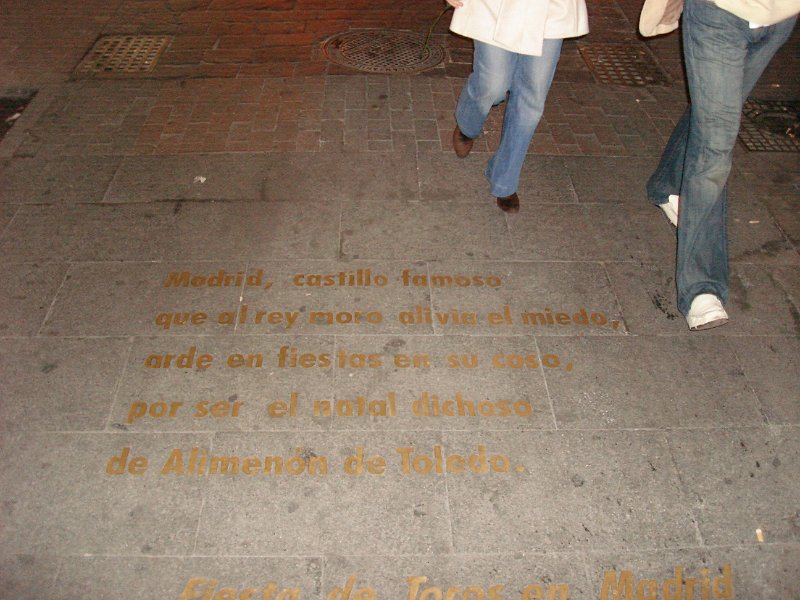 Madrid, castillo famoso
que al rey moro alivia el miedo,
arde en fiestas en su coso,
por ser el natal dichoso
de Alimenón de Toledo.
Fiesta de Toros en Madrid